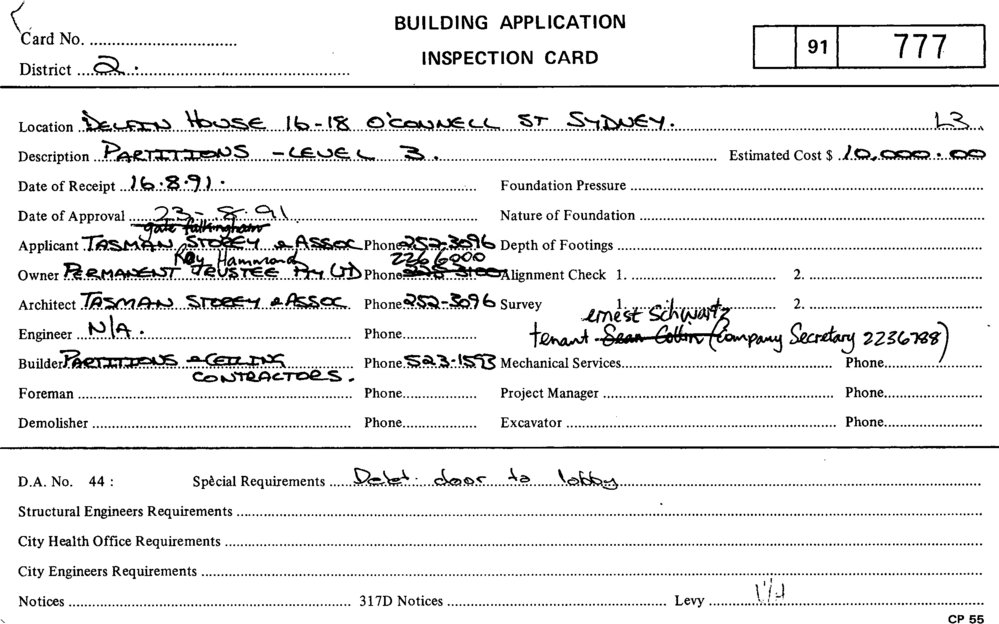 BUILDING APPLICATION
INSPECTION CARD
Card No.
91 777
District 2.
Location DELFIN HOUSE 16-18 O'CONNELL ST SYDNEY. L3
Description PARTITIONS - LEVEL 3. Estimated Cost $ 10,000.00
Date of Receipt 16.8.91. Foundation Pressure
Date of Approval 23-8.91 Nature of Foundation
gate fullingham
Applicant TASMAN STOREY & ASSOC Phone 252-3096 Depth of Footings
Ray Hammond 226 6000
Owner PERMANENT TRUSTEE PTY LTD Phone Alignment Check 1. 2.
Architect TASMAN STOREY & ASSOC Phone 252-3096 Survey 1. 2.
ernest Schwartz
Engineer N/A. Phone tenant Sean Collin (Company Secretary 2236788)
Builder PARTITIONS & CEILING Phone 523-1593 Mechanical Services Phone
CONTRACTORS.
Foreman Phone Project Manager Phone
Demolisher Phone Excavator Phone
D.A. No. 44 : Special Requirements Delet. door to lobby
Structural Engineers Requirements
City Health Office Requirements
City Engineers Requirements
Notices 317D Notices Levy
CP 55